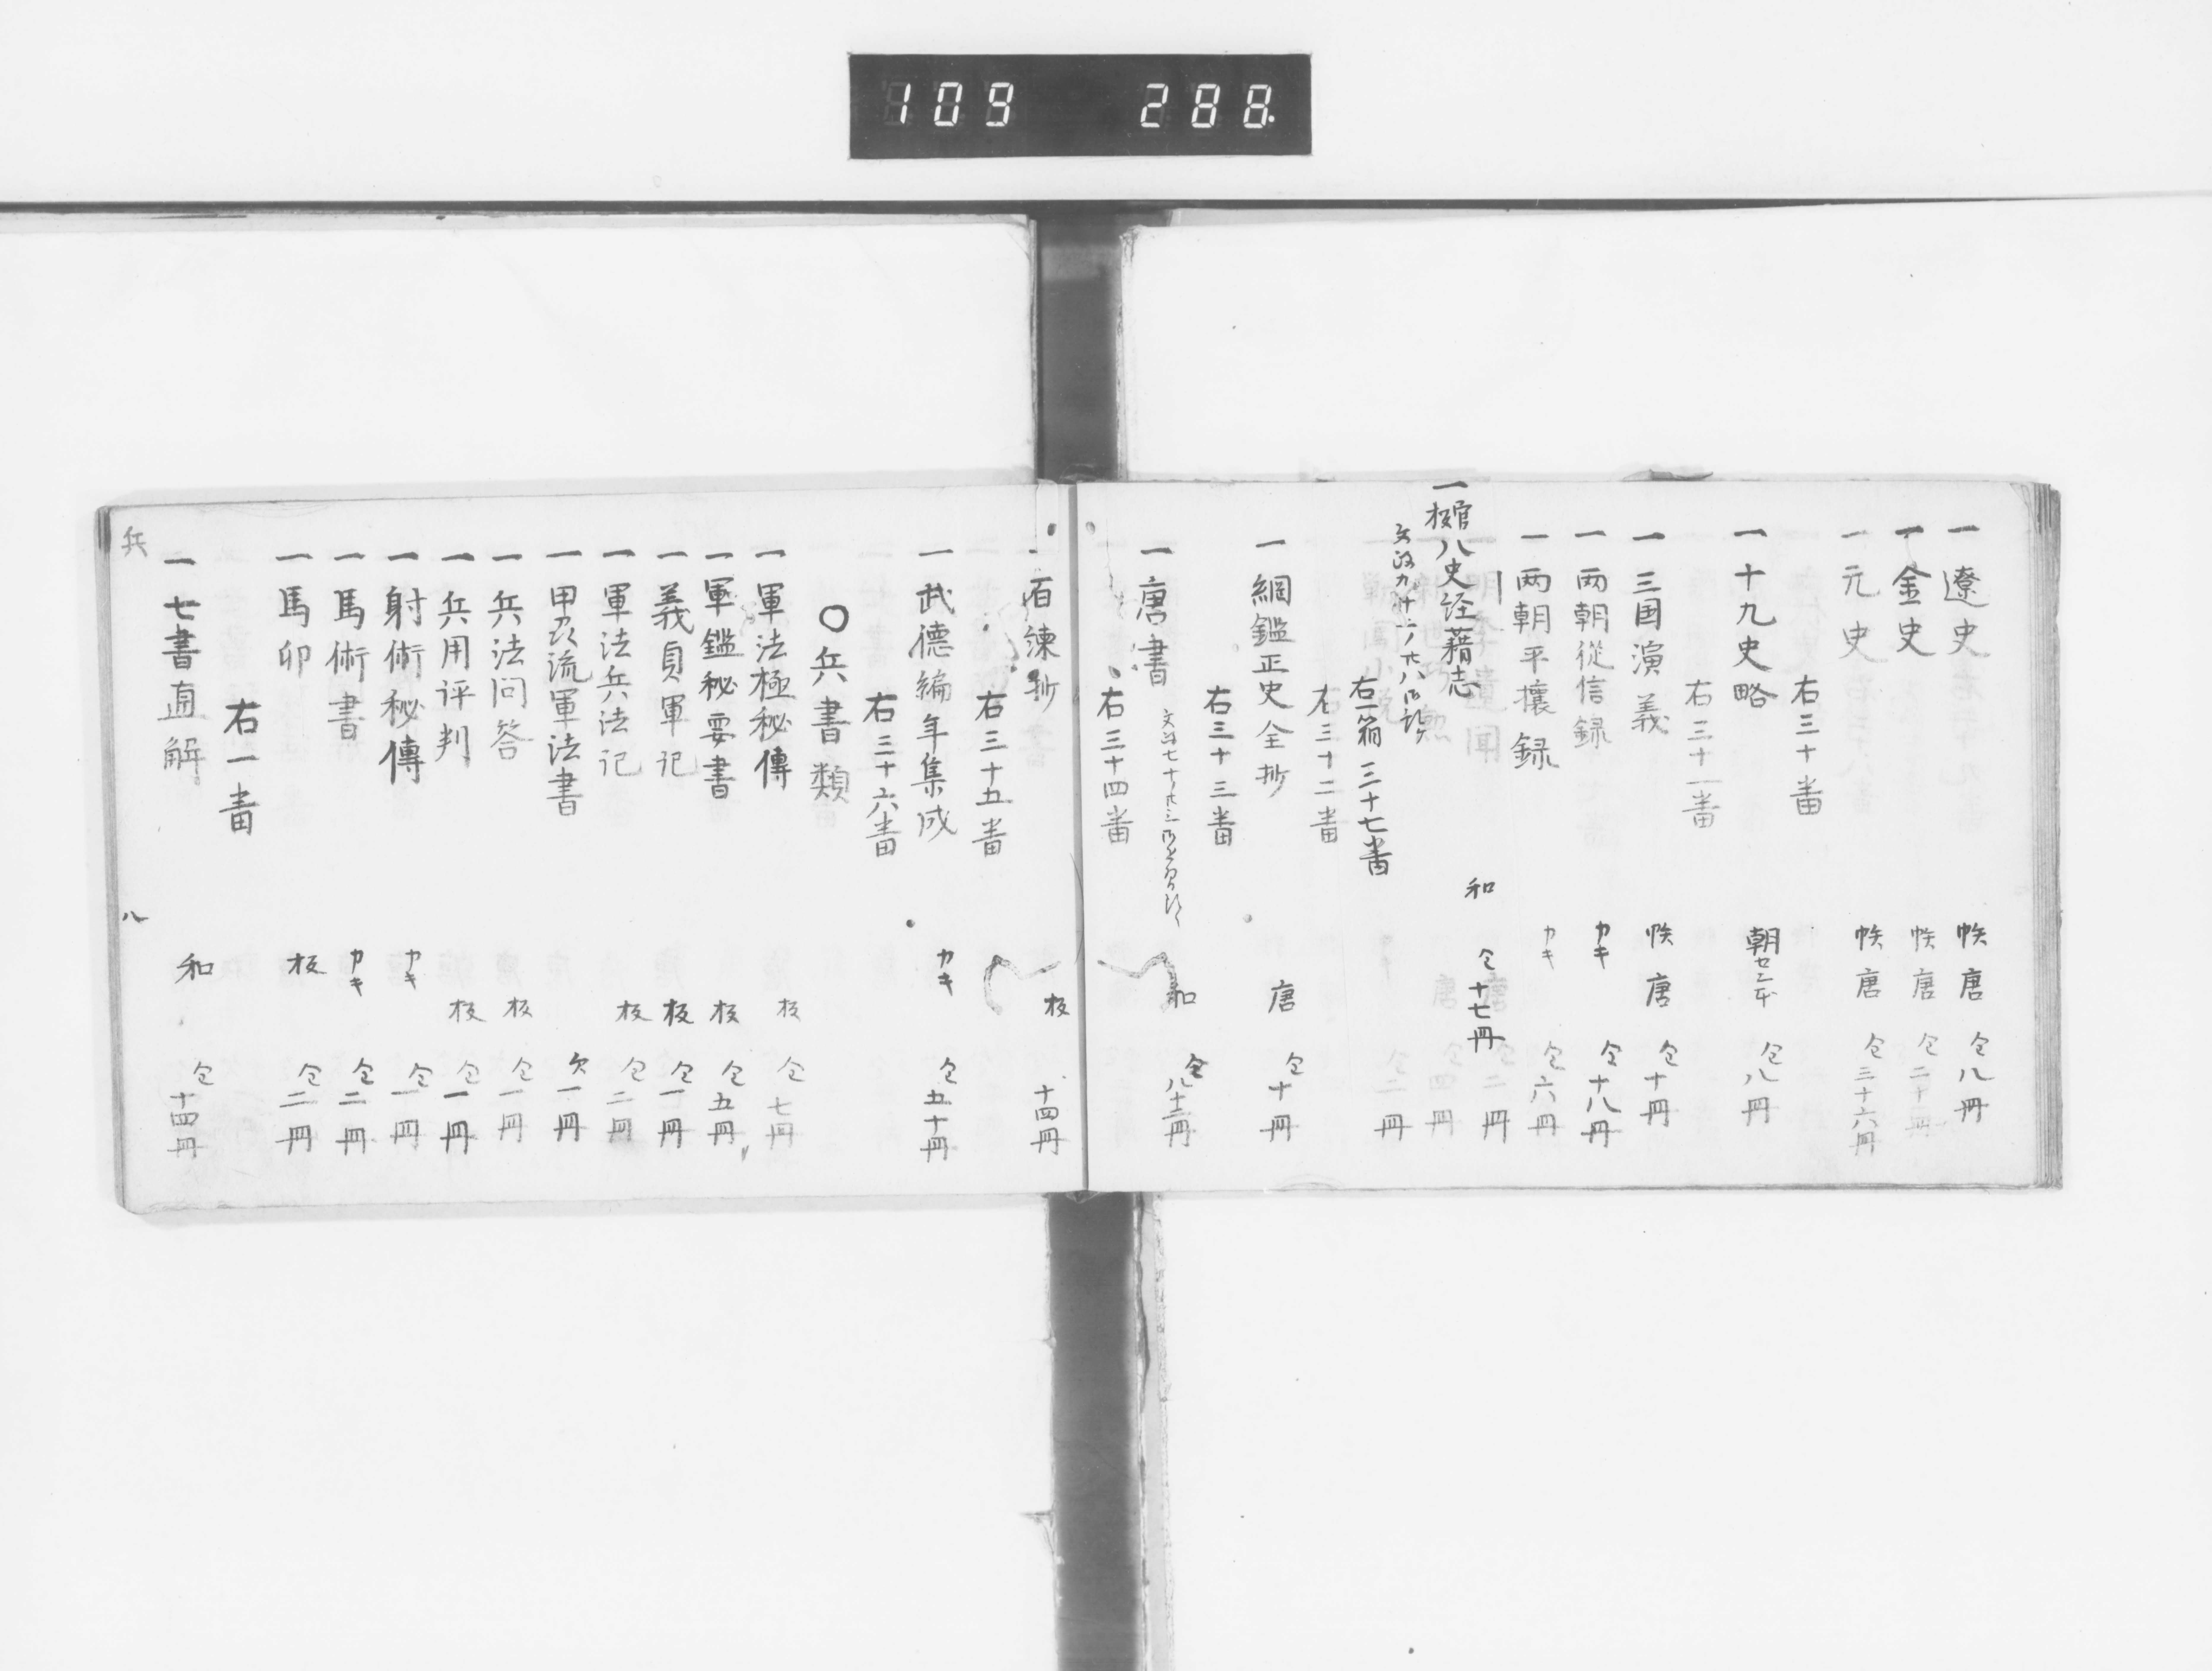 109 288.
一遼史 帙 唐 仝八冊
一金史 帙 唐 仝二十冊
一元史 帙 唐 仝三十六冊
右三十番
一十九史略 朝センキ 仝八冊
右三十一番
一三国演義 帙 唐 仝十冊
一両朝從信録 カキ 仝十八冊
一両朝平攘録 カキ 仝六冊
二冊
一官板八史経藉志 和 仝十七冊
四冊
右一箱三十七番
二冊
右三十二番
一綱鑑正史全抄 唐 仝十冊
右三十三番
一唐書 和 仝
右三十四番
一百練抄 板 十四冊
右三十五番
一武德編年集成 カキ 仝五十冊
右三十六番
〇兵書類
一軍法極秘傳 板 仝七冊
一軍鑑秘要書 板 仝五冊
一義貞軍記 板 仝一冊
一軍法兵法記 板 仝二冊
一甲段流軍法書 欠一冊
一兵法问答 板 仝一冊
一兵用评判 板 仝一冊
一射術秘傳 カキ 仝一冊
一馬術書 カキ 仝二冊
一馬卯 板 仝二冊
右一番
一七書直解 和 仝十四冊
兵 八